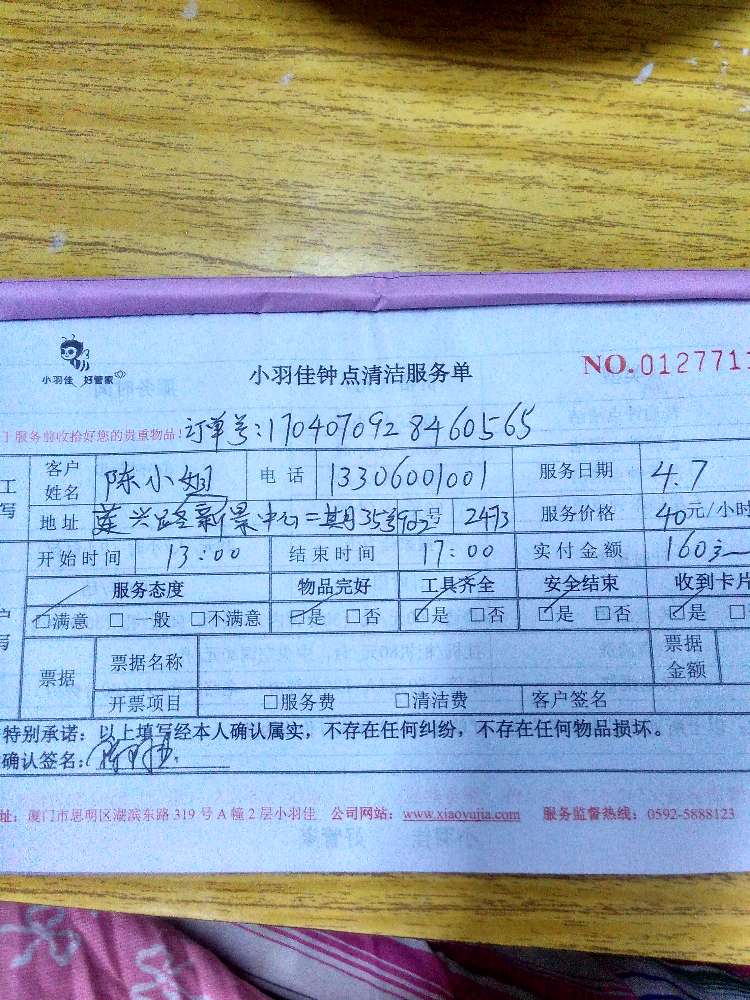 小羽佳 好管家
小羽佳钟点清洁服务单
NO.0127711
服务前收拾好您的贵重物品!订单号:1704070928460565
客户姓名 陈小姐 电话 13306001001 服务日期 4.7
地址 莲兴路新景中心二期 号 2473 服务价格 40元/小时
开始时间 13:00 结束时间 17:00 实付金额 160元
服务态度 物品完好 工具齐全 安全结束 收到卡片
☑满意 □一般 □不满意 ☑是 □否 ☑是 □否 ☑是 □否 ☑是 □
票据 票据名称 票据金额
开票项目 □服务费 □清洁费 客户签名
特别承诺:以上填写经本人确认属实,不存在任何纠纷,不存在任何物品损坏。
确认签名:
址:厦门市思明区湖滨东路 319 号 A 幢 2 层小羽佳 公司网站:www.xiaoyujia.com 服务监督热线:0592-5888123